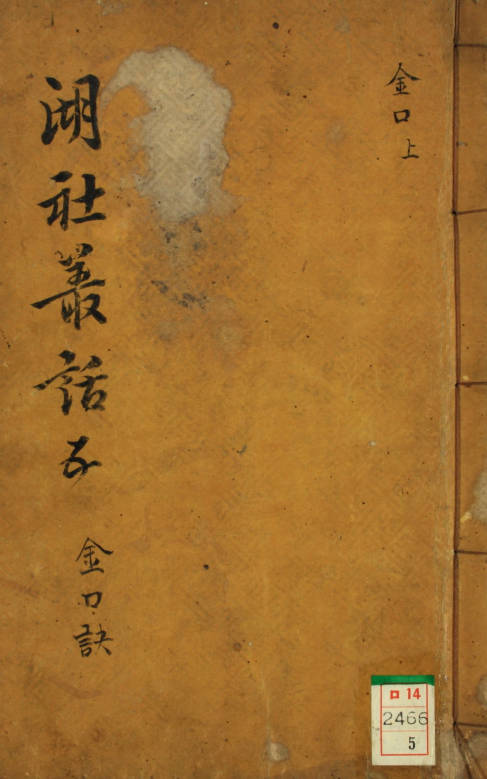 金口上
湖社叢話五
金口訣
ロ 14
2466
5